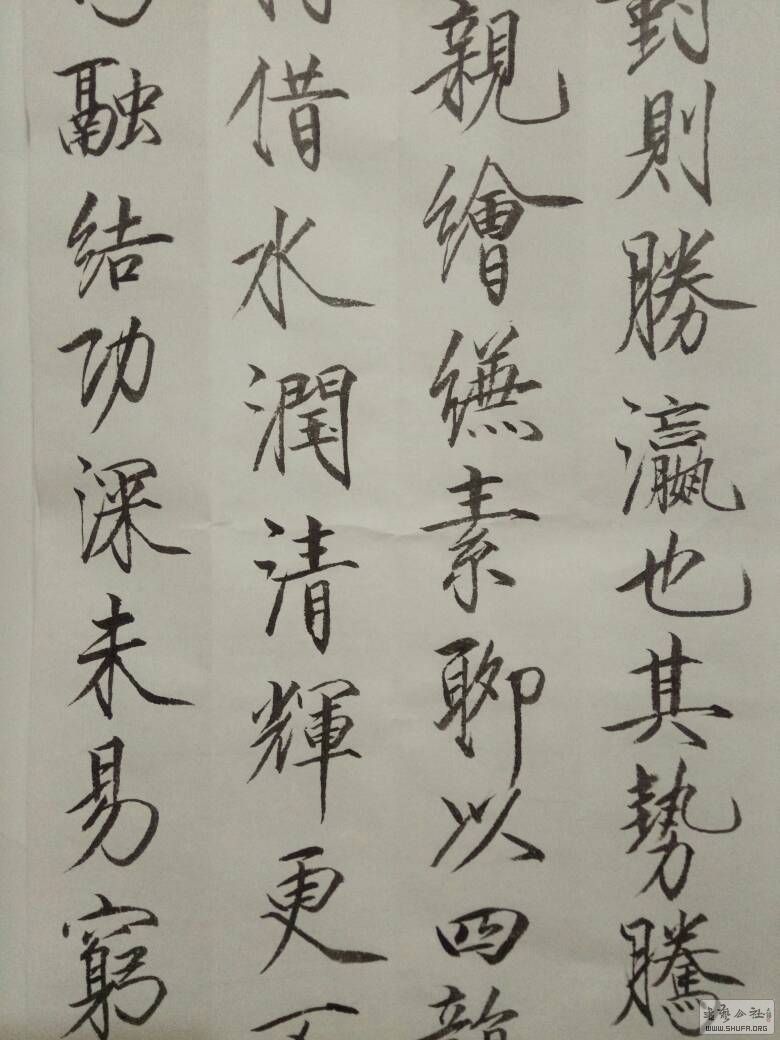 對則勝瀛也其勢騰
親繪縑素聊以四韻
借水潤清輝更不
融結功深未易窮
WWW.SHUFA.ORG